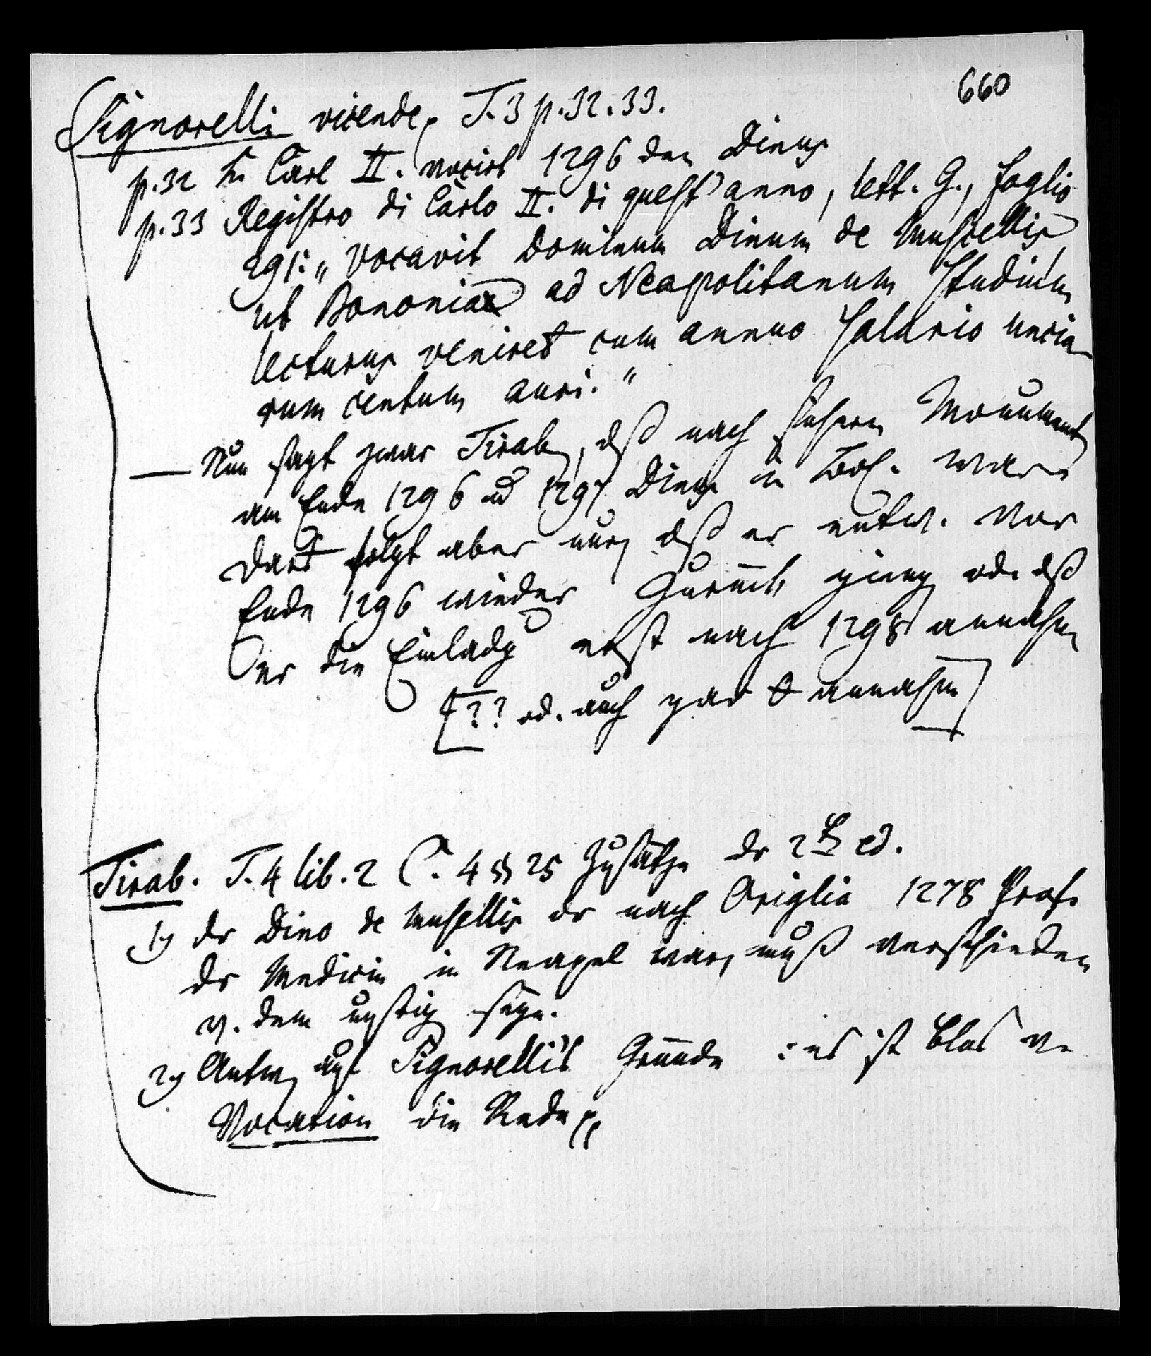 660
Signorelli vicende, T. 3 p. 32. 33.
p. 32 Kg Carl II. vocirt 1296 den Dinus
p. 33 Registro di Carlo II. di quest' anno, lett. G., foglio
291: „ vocavit Dominum Dinum de Muscellis,
ut Bononia ad Neapolitanum Studium
lecturus veniret cum annuo salario uncia-
rum centum auri. "
— Nun sagt zwar Tirab., dß nach sichern Monument
am Ende 1296 ud 1297 Dinus in Bol. ware
Dart folgt aber nur, dß er entw. vor
Ende 1296 wieder zurück ging od. dß
er die Einladg erst nach 1298 annahm
[?? od. auch gar annahm]
Tirab. T. 4 lib. 2 C. 4 § 25 Zusätze dr 2 ed.
1) dr Dino de Musellis dr nach Origlia 1278 Prof.
dr Medicin in Neapel war, muß verschieden
v. dem unsrig seyn.
2) Antw. auf Signorelli's Gründe : es ist blos v.
Vocation die Rede